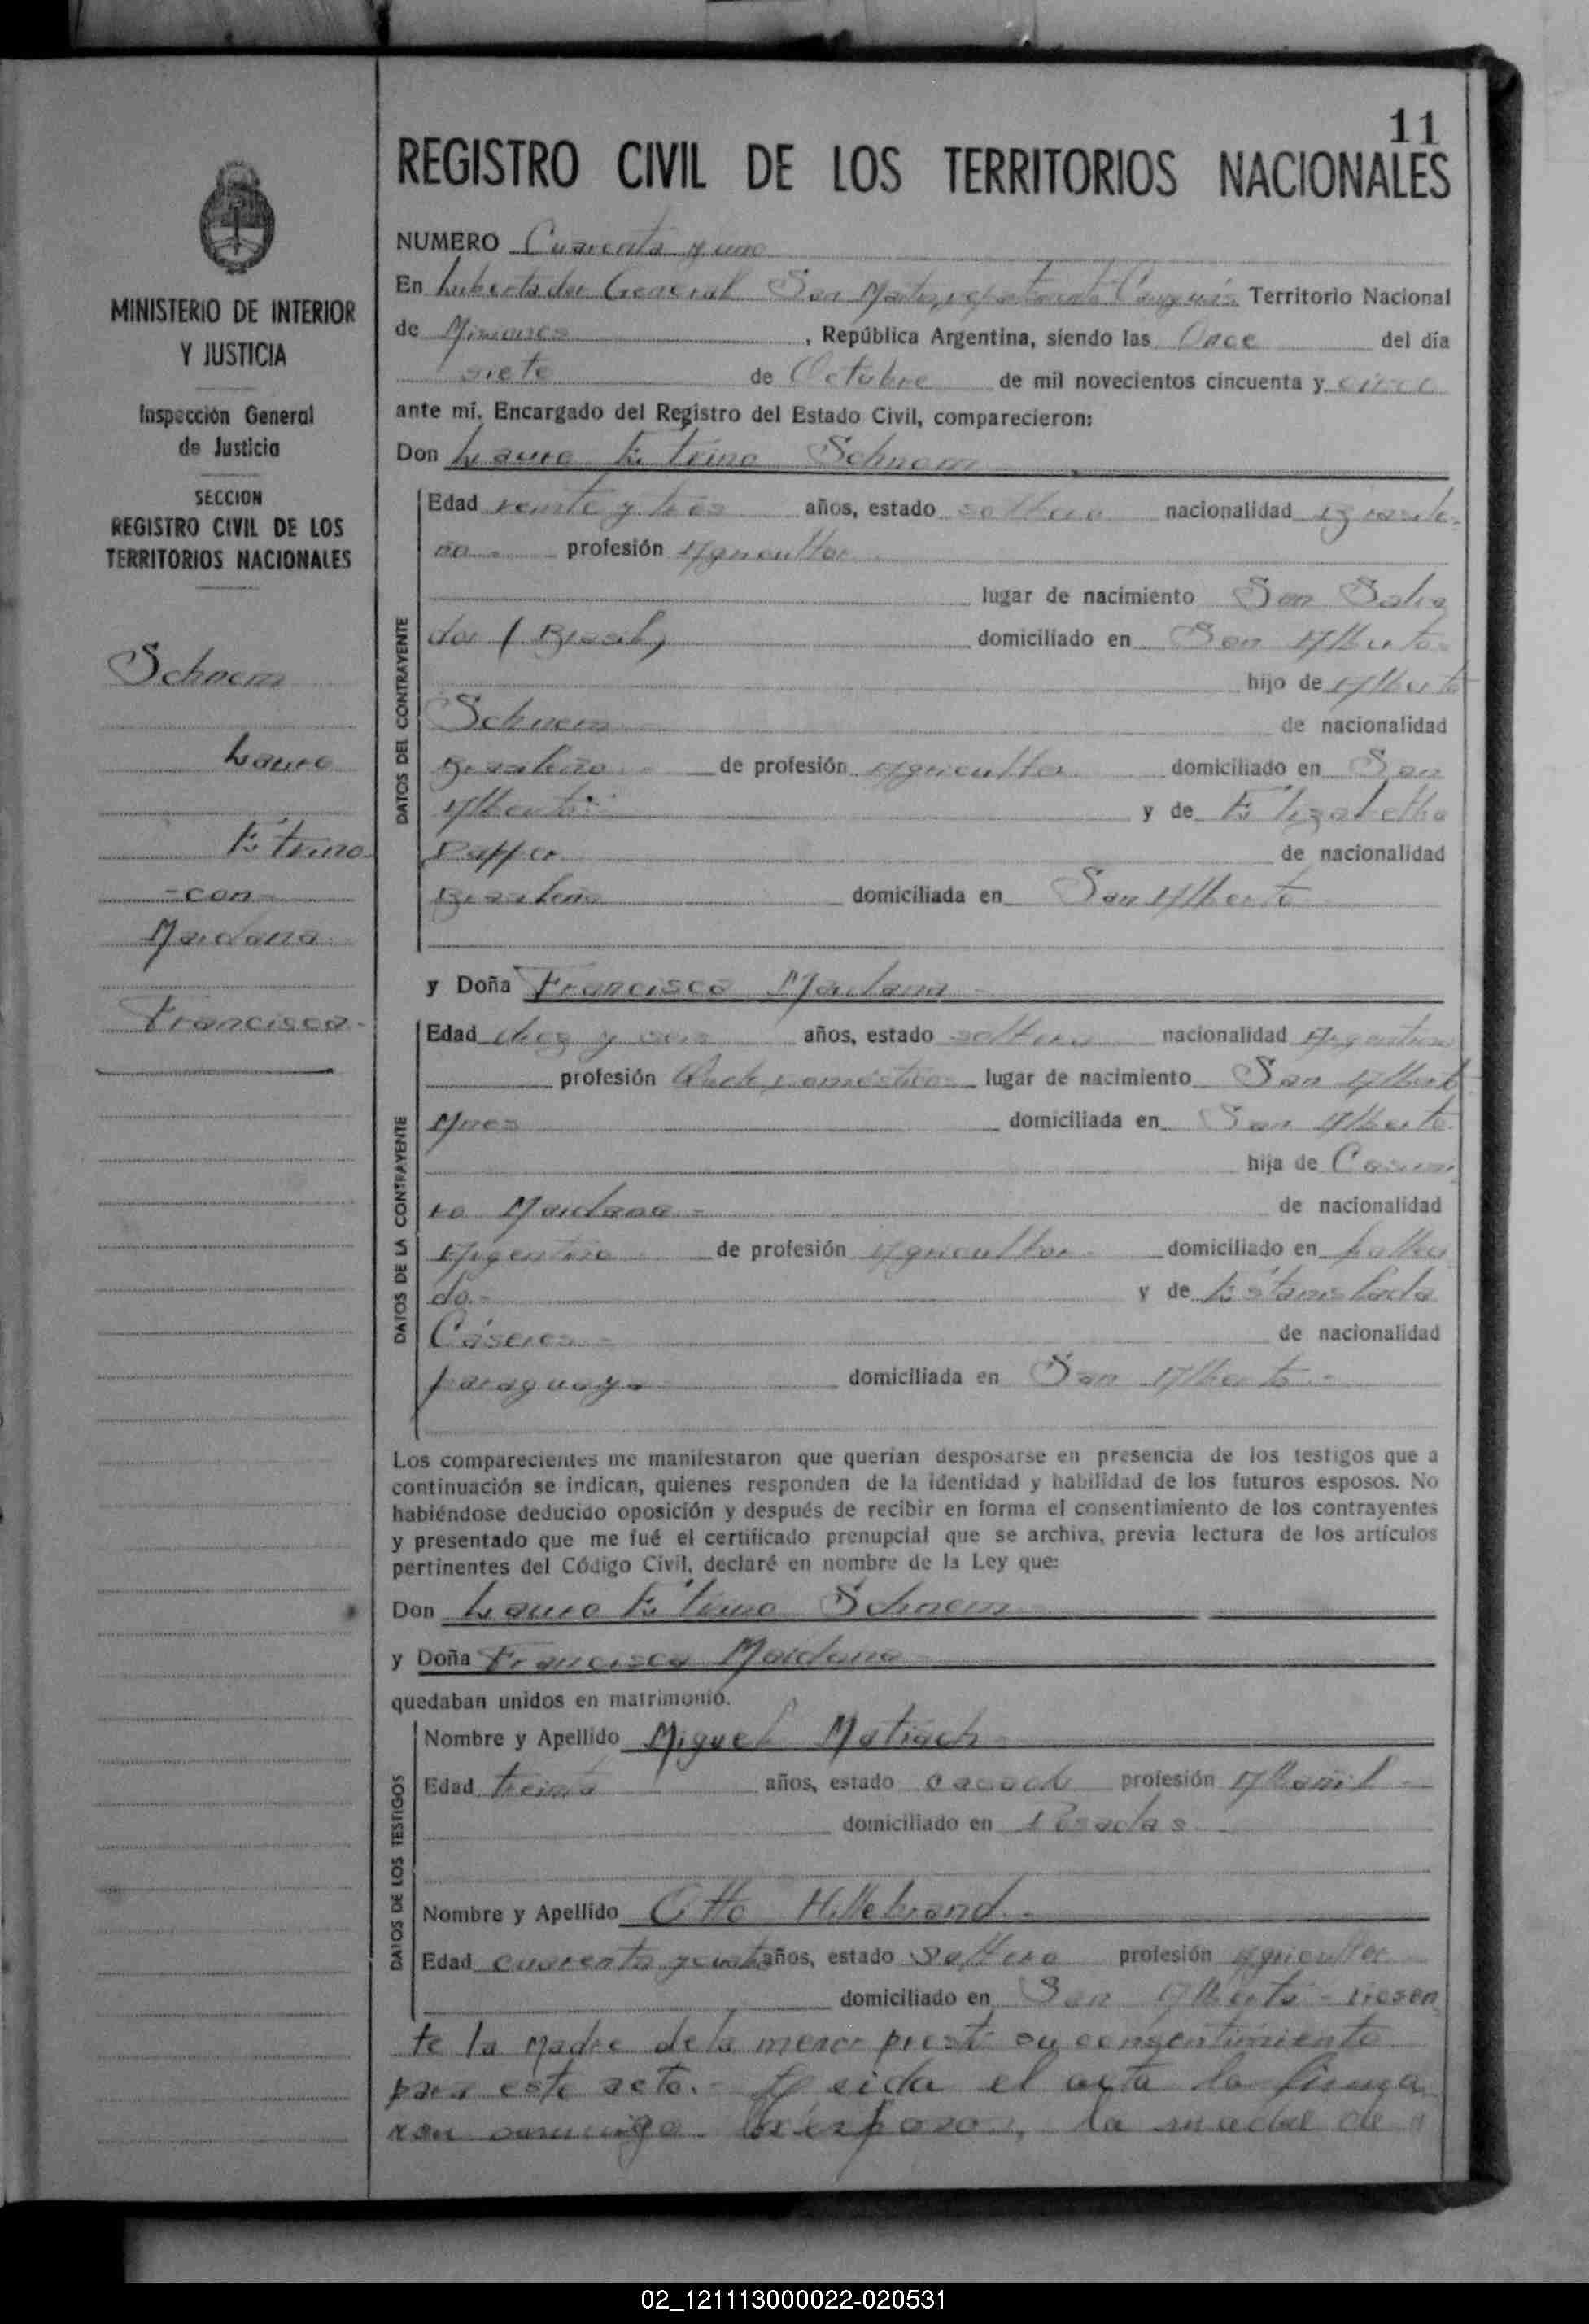 11
REGISTRO CIVIL DE LOS TERRITORIOS NACIONALES
MINISTERIO DE INTERIOR
Y JUSTICIA
Inspección General
de Justicia
SECCION
REGISTRO CIVIL DE LOS
TERRITORIOS NACIONALES
Schnem
Lauro
Etrino
-con-
Maidana
Francisca-
NUMERO Cuarenta y uno
En Libertador General San Martín, Territorio Nacional
de Misiones, República Argentina, siendo las Once del día
siete de Octubre de mil novecientos cincuenta y cinco
ante mí, Encargado del Registro del Estado Civil, comparecieron:
Don Lauro Etrino Schnem
DATOS DEL CONTRAYENTE
Edad veinte y tres años, estado soltero nacionalidad brasile-
ña profesión Agricultor
lugar de nacimiento San Salva
dor (Brasil) domiciliado en San Alberto
hijo de Alberto
Schnem de nacionalidad
Brasileño de profesión agricultor domiciliado en San
Alberto y de Elizabetha
de nacionalidad
Brasileña domiciliada en San Alberto
y Doña Francisca Maidana
DATOS DE LA CONTRAYENTE
Edad diez y seis años, estado soltera nacionalidad Argentina
profesión lugar de nacimiento San Alberto
Mnes domiciliada en San Alberto
hija de Casimi
ro Maidana de nacionalidad
Argentino de profesión agricultor domiciliado en falle
do.- y de Estanislada
Cáseres de nacionalidad
paraguaya domiciliada en San Alberto
Los comparecientes me manifestaron que querían desposarse en presencia de los testigos que a
continuación se indican, quienes responden de la identidad y habilidad de los futuros esposos. No
habiéndose deducido oposición y después de recibir en forma el consentimiento de los contrayentes
y presentado que me fué el certificado prenupcial que se archiva, previa lectura de los artículos
pertinentes del Código Civil, declaré en nombre de la Ley que:
Don Lauro Etrino Schnem
y Doña Francisca Maidana
quedaban unidos en matrimonio.
DATOS DE LOS TESTIGOS
Nombre y Apellido Miguel Matiach
Edad treinta años, estado casado profesión Albañil
domiciliado en Posadas
Nombre y Apellido Otto Hillebrand
Edad cuarenta años, estado soltero profesión agricultor
domiciliado en San Alberto - Presen
te la madre de la menor prestó su consentimiento
para este acto.- Leída el acta la firma
ron conmigo los esposos, la madre de
02_121113000022-020531